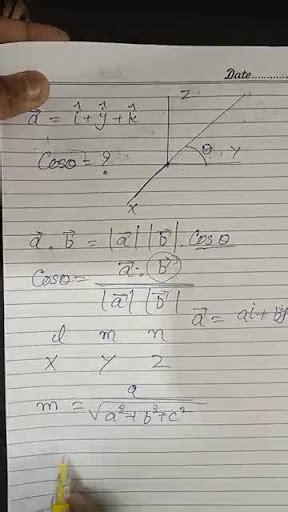 Date............
Z
a⃗ = î + ŷ + k̂
Cosθ = ?
θ, Y
X
a⃗ . b⃗ = |a⃗| |b⃗| . Cosθ
Cosθ = a⃗ . b⃗ / |a⃗| |b⃗|
a⃗ = ai + bj
l m n
X Y Z
m = a / √a²+b²+c²